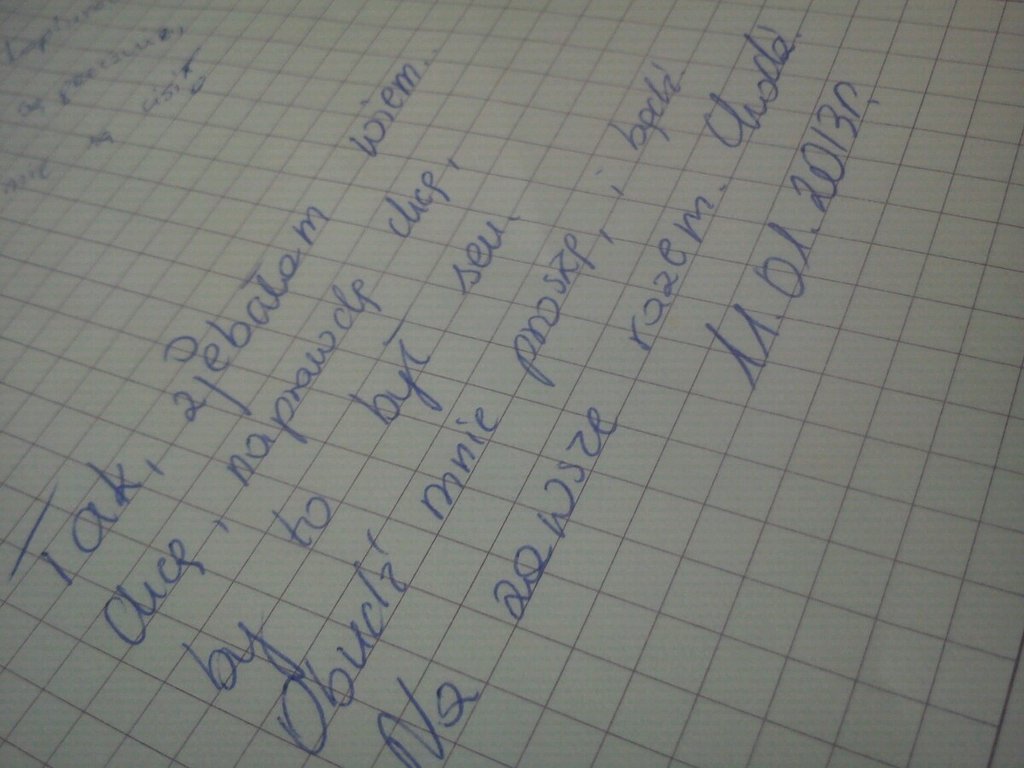 Tak, zjebałam wiem.
Chcę, naprawdę chcę,
by to był sen.
Obudź mnie proszę, i bądź
Na zawsze razem. Chodź.
11.01.2013r.